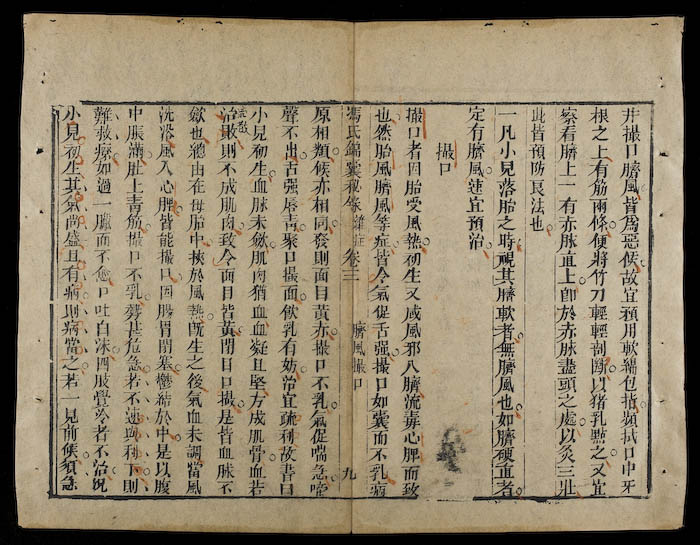 并撮口臍風皆爲惡候故宜預用軟綿包指頻拭口中牙
根之上有筋兩條便將竹刀輕輕割斷以猪乳點之又宜
察看臍上一有赤脉直上卽於赤脉盡頭之處以灸三壯
此皆預防良法也
一凡小兒落胎之時視其臍軟者無臍風也如臍硬直者
定有臍風速宜預治
撮口
撮口者因胎受風熱初生又感風邪入臍流毒心脾而致
也然胎風臍風等症皆令氣促舌强撮口如囊而不乳病
馮氏錦囊秘錄 雜症 卷三 臍風撮口 九
原相類候亦相同發則面目黃赤撮口不乳氣促喘急啼
聲不出舌强唇青聚口撮面飲乳有妨治宜疏利故書曰
小兒初生血脉未斂肌肉猶血血凝且堅方成肌骨血若
沮敗則不成肌肉致令面目皆黃閉目口撮是皆血脉不
斂也總由在母胎中挾於風熱旣生之後氣血未調當風
洗浴風入心脾皆能撮口因腸胃閉塞鬱結於中是以腹
中脹滿肚上青筋撮口不乳殊甚危急若不速與利下則
難救療如過一臘而不愈口吐白沫四肢覺冷者不治況
小兒初生其氣尚盛且有病則病當之若一見前候須急